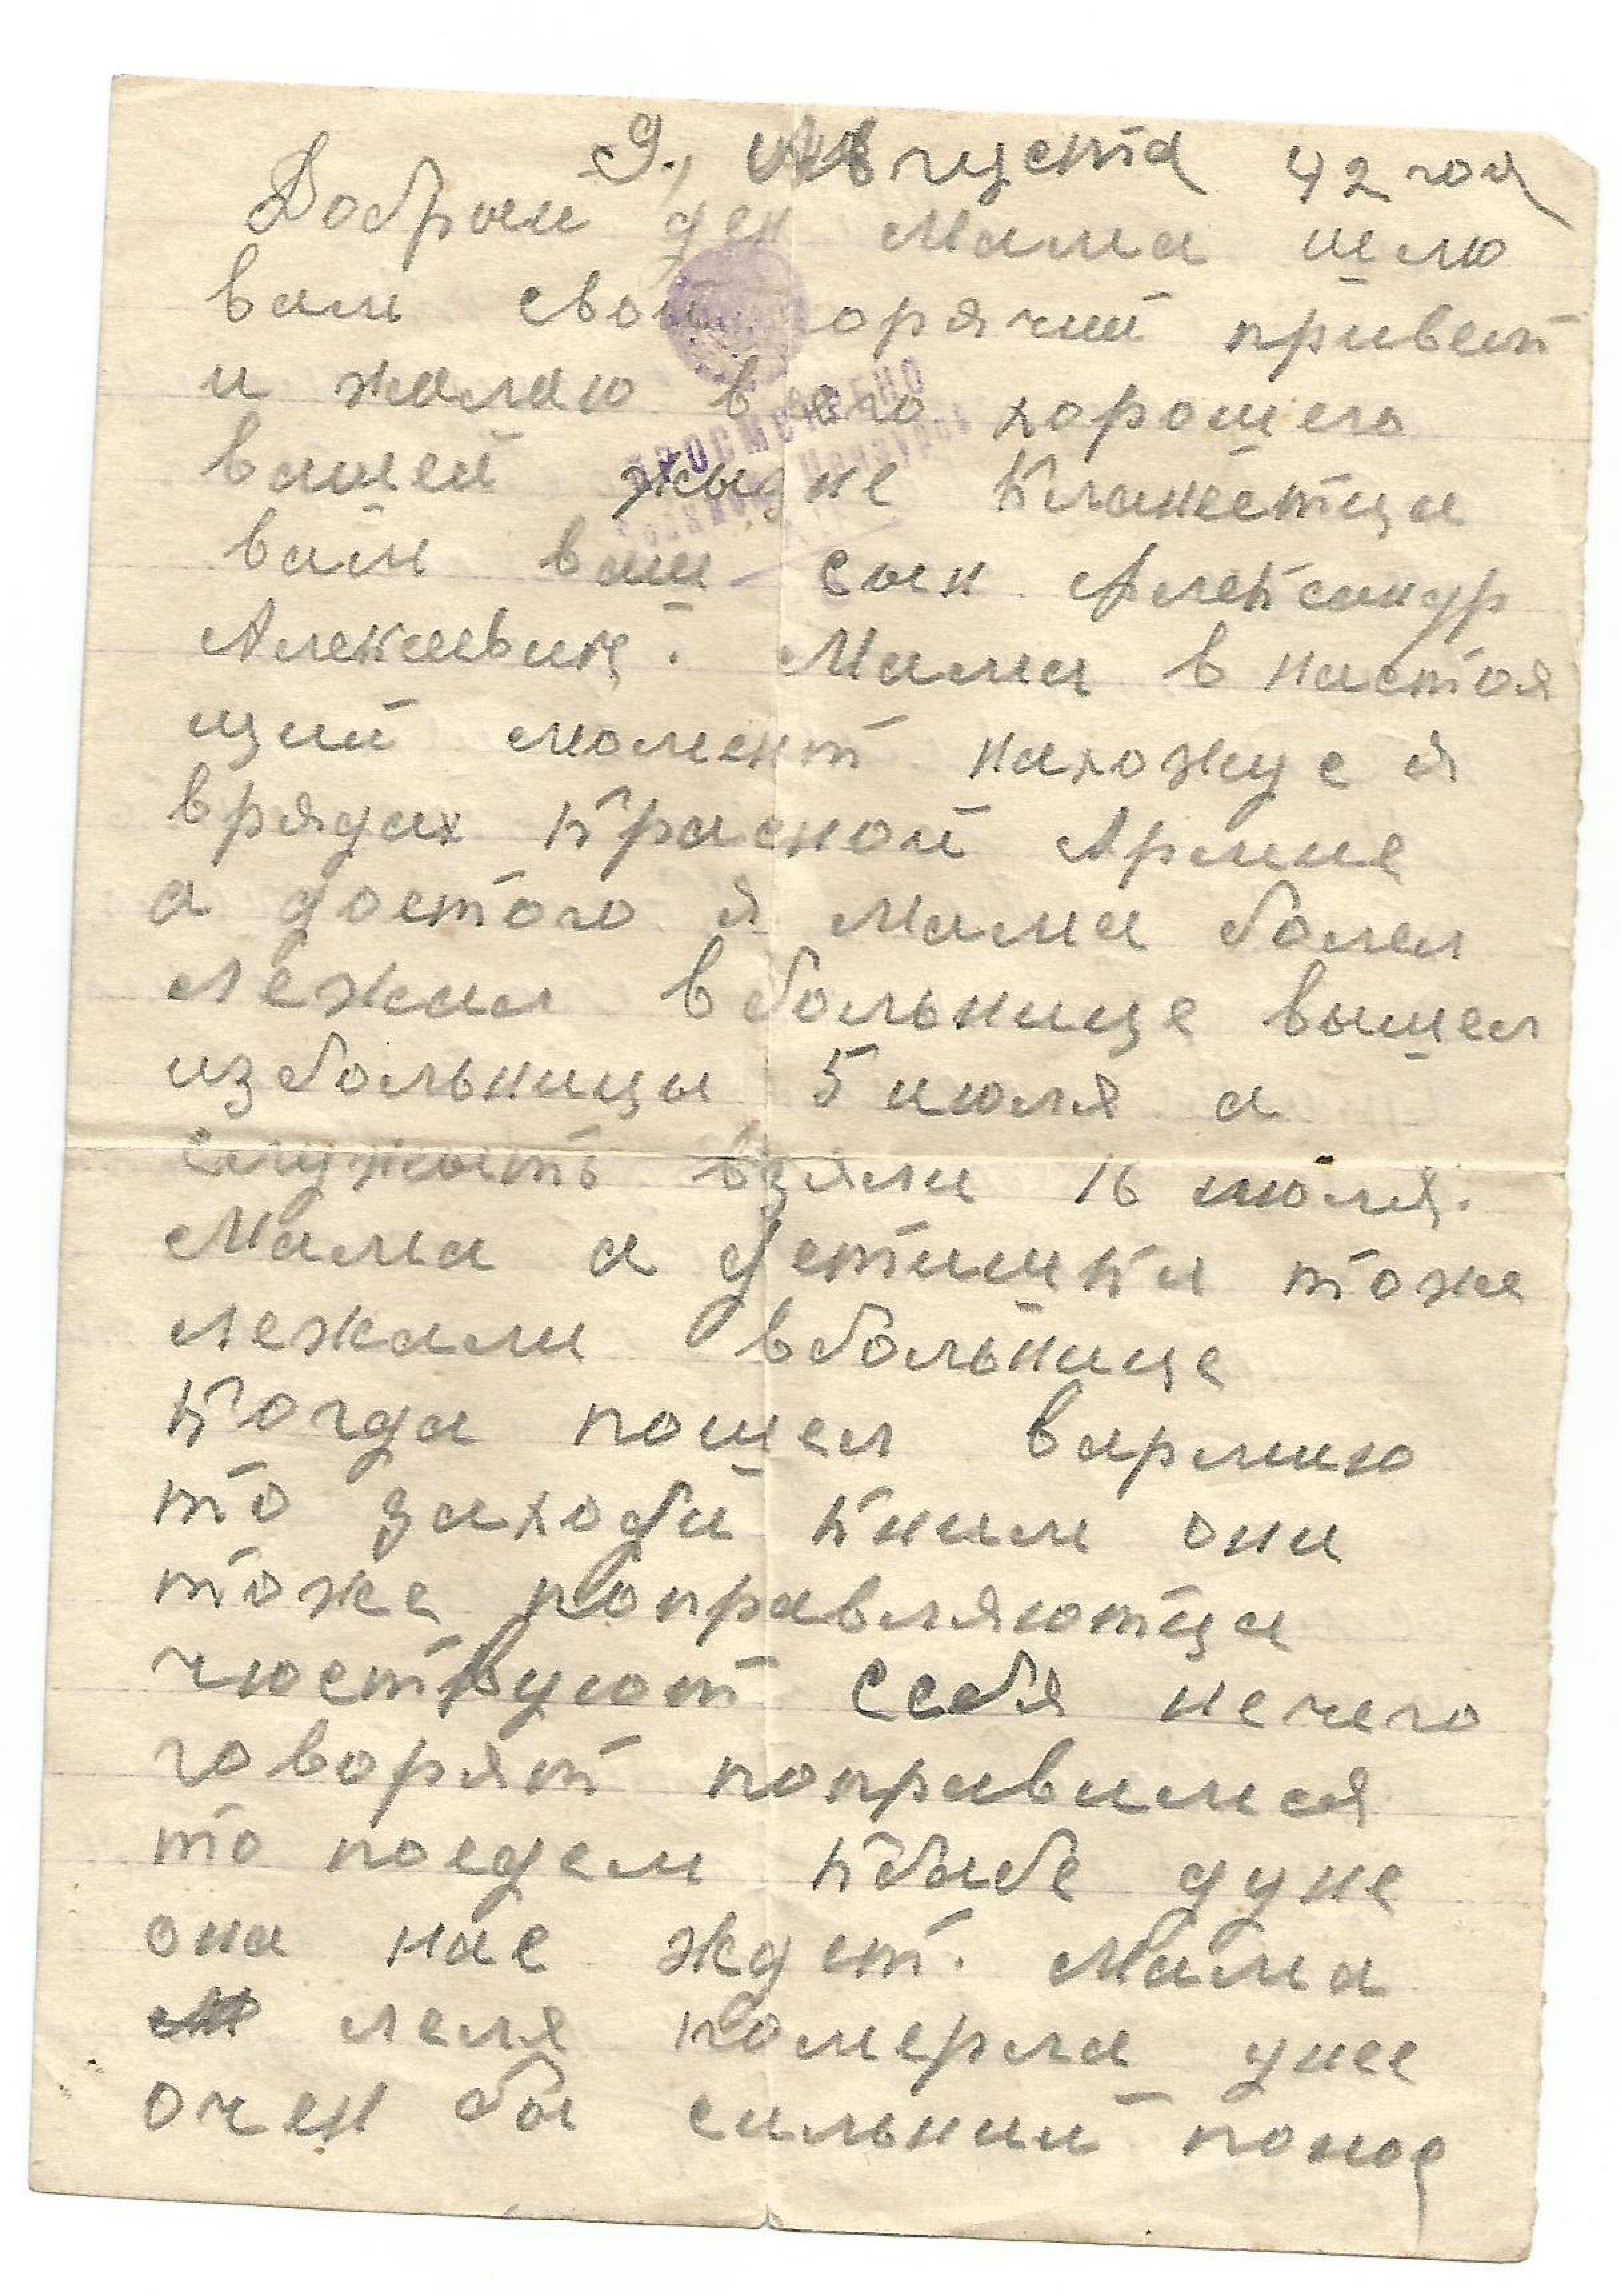 9, Августа 42 год
Добрыи ден Мама шлю
вам свой горячий привет
и желаю всего хорошего
вашей жызне Кланеетца
вам ваш сын Александр
Алексеевич. Мама в настоя
щий момент нахожус я
врядах Красной Армие
а достого я Мама болел
лежал вбольнице вышел
избольницы 5 июля а
служыть взяли 16 июля.
Мама а детишки тоже
лежали вбольнице
Когда пошел вармию
то заходи кним они
тоже поправляютца
чюствуют себя нечего
говорят поправимся
то поедем кбабе дуне
она нас ждет. Мама
леля померла унее
очен бы сильний понос
ПРОСМОТРЕНО
Военной Цензурой